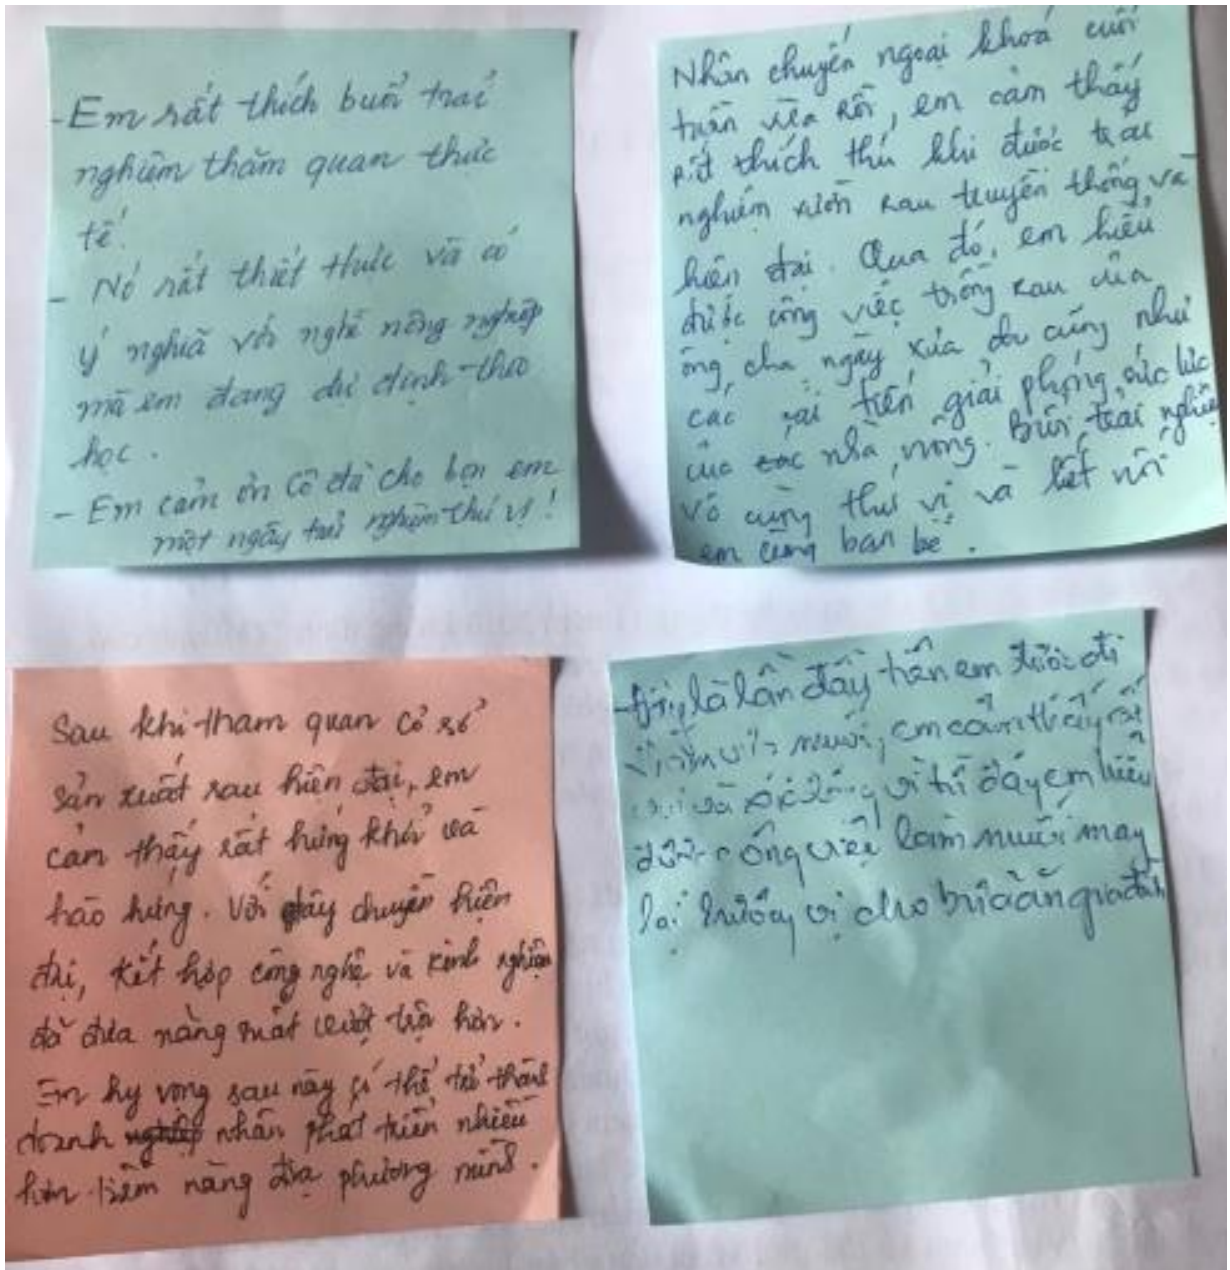 - Em rất thích buổi trải
nghiệm thăm quan thực
tế!
- Nó rất thiết thực và có
ý nghĩa với nghề nông nghiệp
mà em đang dự định theo
học.
- Em cảm ơn Cô đã cho bọn em
một ngày trải nghiệm thú vị!
Nhân chuyến ngoại khoá cuối
tuần vừa rồi, em cảm thấy
rất thích thú khi được trải
nghiệm vườn rau truyền thống và
hiện đại. Qua đó, em hiểu
được công việc trồng rau của
ông cha ngày xưa cũng như
các cải tiến giải phóng sức lực
của các nhà nông. Buổi trải nghiệm
vô cùng thú vị và kết nối
em cùng bạn bè.
Sau khi tham quan cơ sở
sản xuất rau hiện đại, em
cảm thấy rất hứng khởi và
hào hứng. Với dây chuyền hiện
đại, kết hợp công nghệ và kinh nghiệm
đã đưa năng suất vượt trội hơn.
Em hy vọng sau này có thể trở thành
doanh nhân phát triển nhiều
hơn tiềm năng địa phương mình.
là lần đầy tiên em được đi
muối, em cảm thấy rất
và vì từ đây em hiểu
được công việc làm muối may
lại hương vị cho bữa ăn gia đình